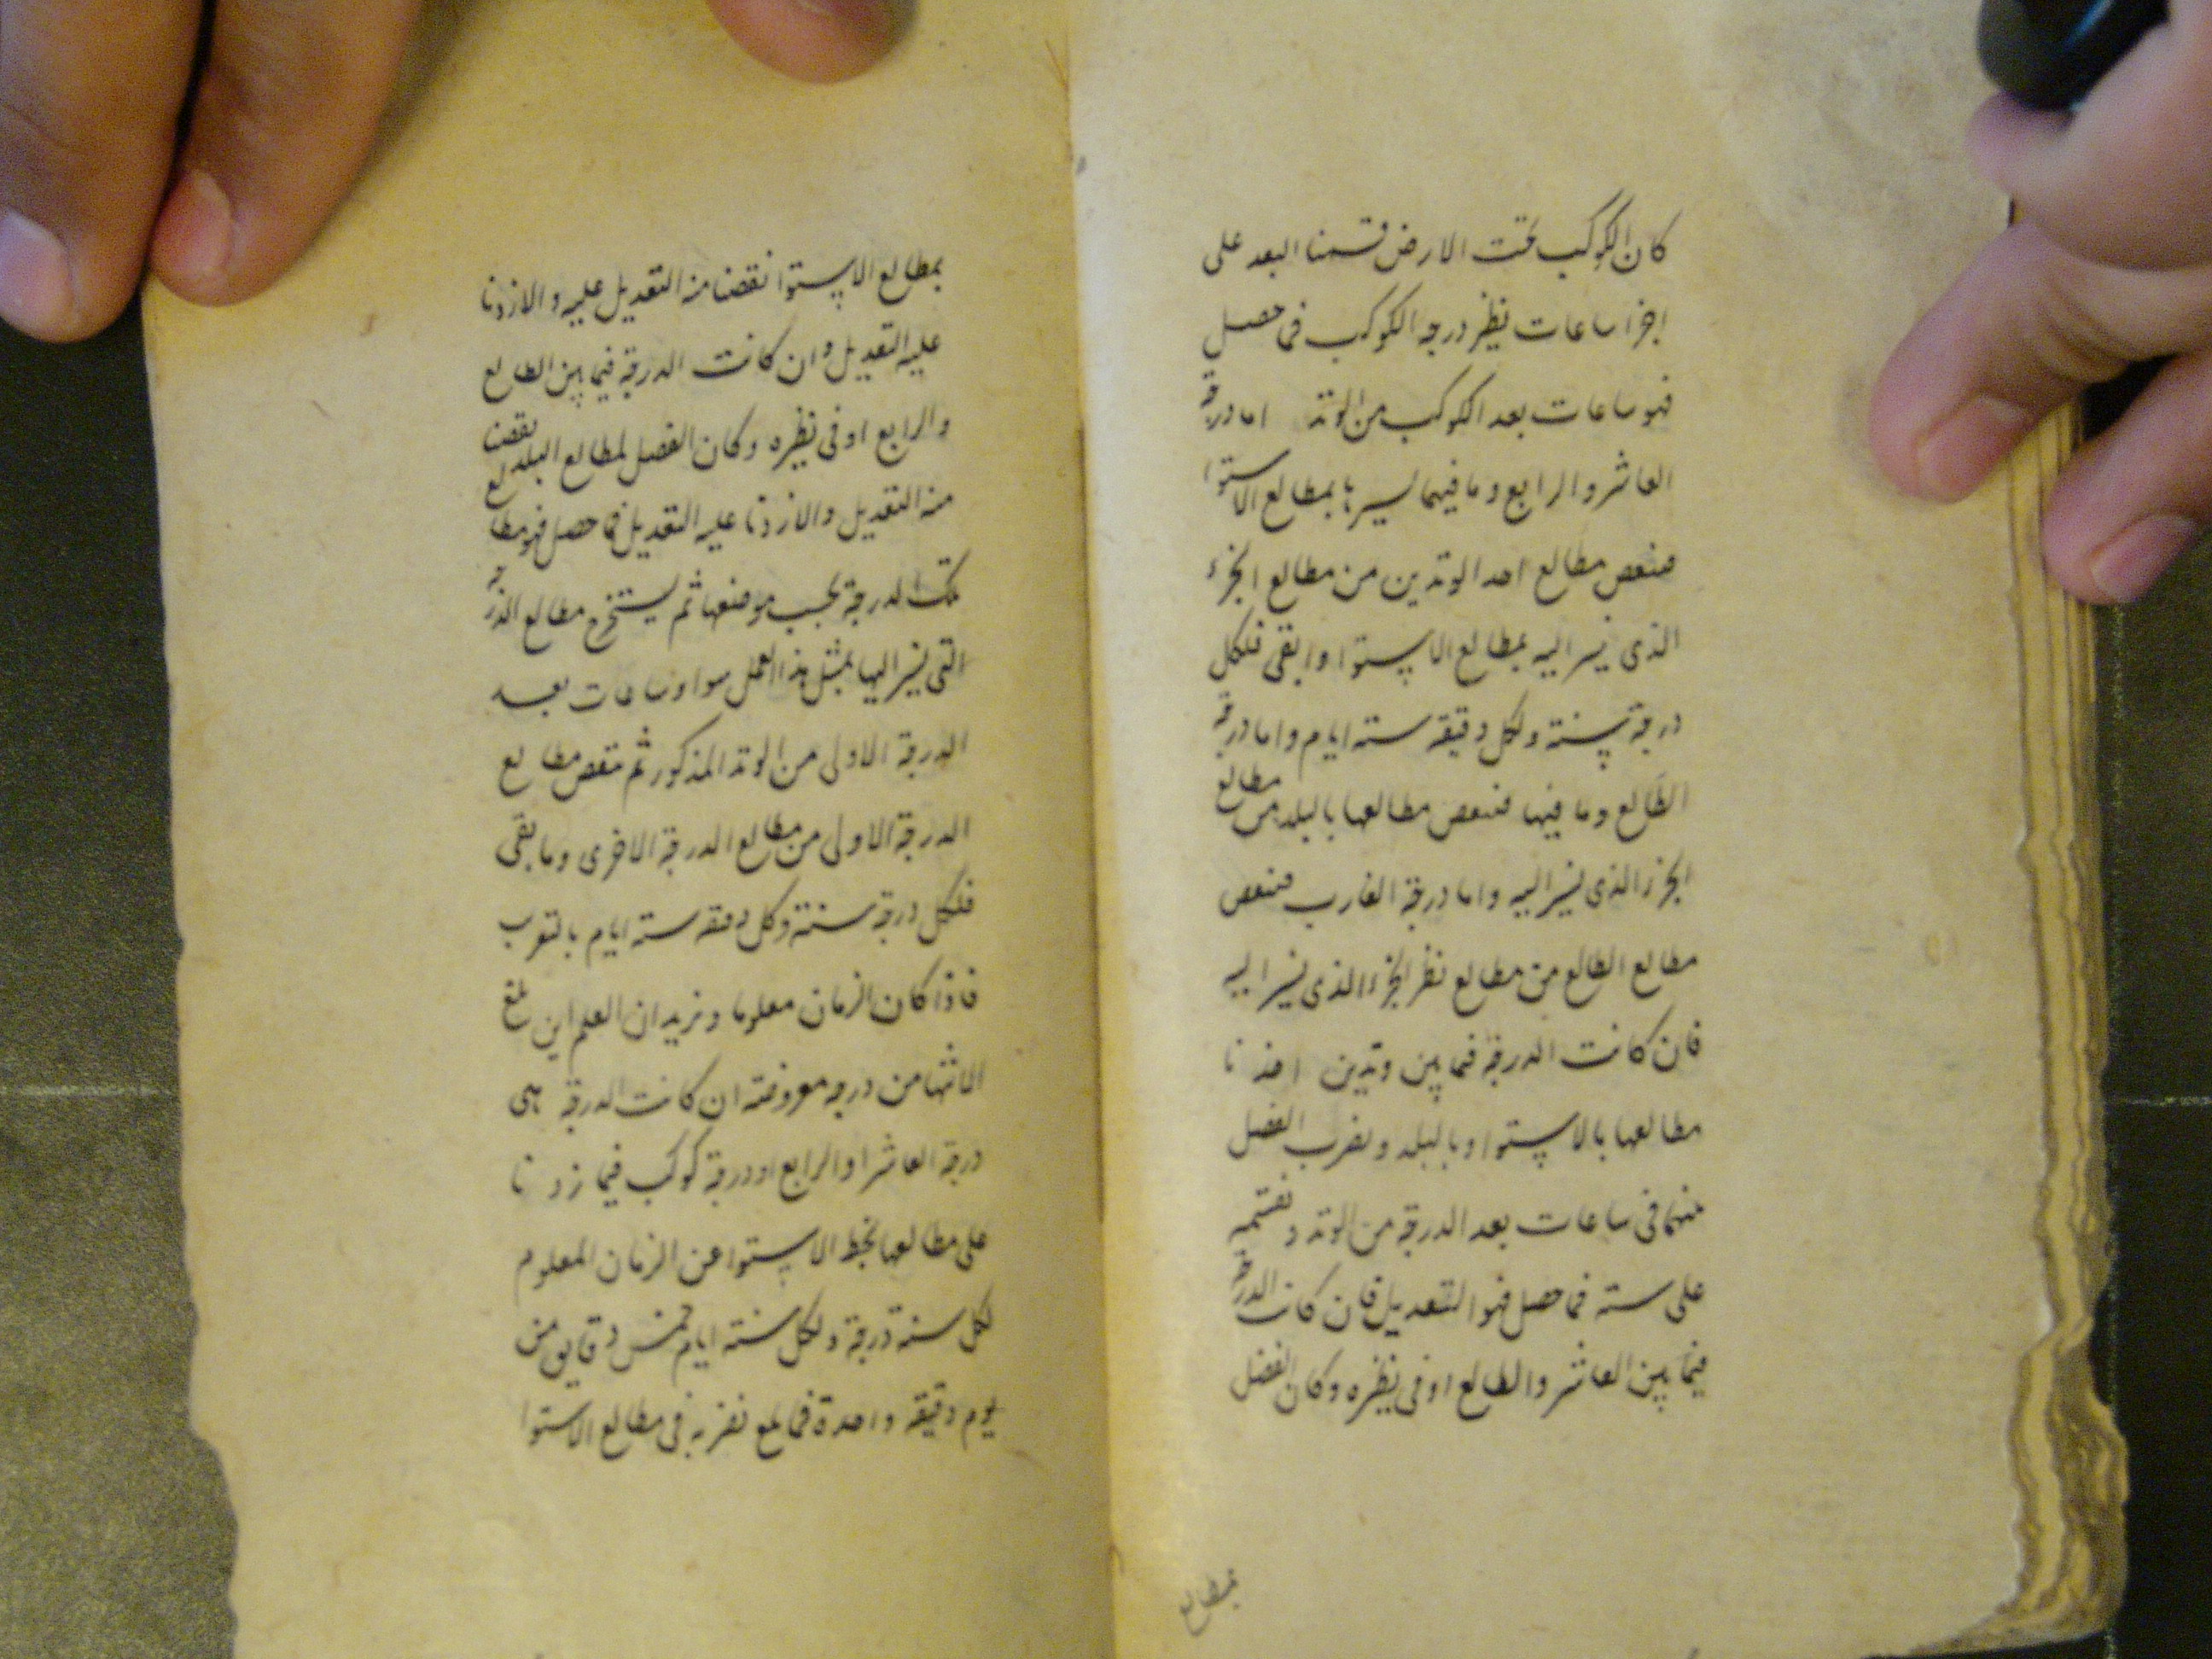 كان الكوكب تحت الارض قسمنا البعد على
اجزا ساعات نظير درجه الكوكب فى حصل
فهو ساعات بعد الكوكب من الوتد اما درجة
العاشر والرابع وما فيهما نسيرها بمطالع الاستوا
فننقص مطالع احد الوتدين من مطالع الجزء
الذى نسير اليه بمطالع الاستوا وما بقى فلكل
درجة سنة ولكل دقيقه سته ايام واما درجة
الطالع وما فيها فننقص مطالعها بالبلد من مطالع
الجزء الذى نسير اليه واما درجة الغارب فننقص
مطالع الطالع من مطالع نظير الجزء الذى نسير اليه
فان كانت الدرجة فيما بين وتدين اخذنا
مطالعها بالاستوا وبالبلد ونضرب الفضل
منهما فى ساعات بعد الدرجة من الوتد ونقسمه
على سته فما حصل فهو التعديل فان كانت الدرجة
فيما بين العاشر والطالع او فى نظيره وكان الفضل
بمطالع
بمطالع الاستوا نقصنا منه التعديل عليه والا زدنا
عليه التعديل وان كانت الدرجة فيما بين الطالع
والرابع او فى نظيره وكان الفضل لمطالع البلد نقصنا
منه التعديل والا زدنا عليه التعديل فما حصل فهو مطالع
تلك الدرجة بحسب موضعها ثم يستخرج مطالع الدرجه
التى نسير اليها بمثل هذا العمل سوا وساعات بعد
الدرجة الاولى من الوتد المذكور ثم ننقص مطالع
الدرجة الاولى من مطالع الدرجة الاخرى وما بقى
فلكل درجة سنة وكل دقيقه سته ايام بالتقريب
فاذا كان الزمان معلوما ونريد ان العلم اين بلغ
الانتها من درجه معروفة ان كانت الدرجة هى
درجة العاشر او الرابع او درجة كوكب فيما زدنا
على مطالعها بخط الاستوا عن الزمان المعلوم
لكل سنة درجة ولكل ستة ايام خمس دقايق من
يوم دقيقه واحدة فما بلغ نضربه فى مطالع الاستوا